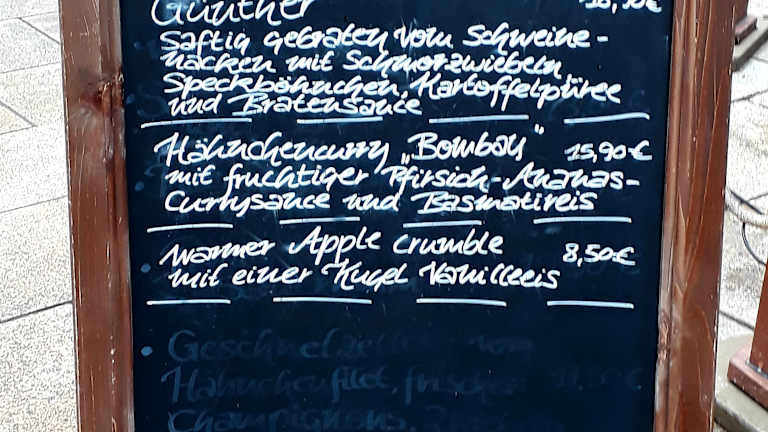 Günther
Saftig gebraten vom Schweine-
nacken mit Schmorzwiebeln,
Speckböhnchen, Kartoffelpüree
und Bratensauce
Hähnchencurry „Bombay" 15,90€
mit fruchtiger Pfirsich-Ananas-
Currysauce und Basmatireis
warmer Apple crumble 8,50€
mit einer Kugel Vanilleeis
Geschnetzeltes vom
Hähnchenfilet, frischen
Champignons,